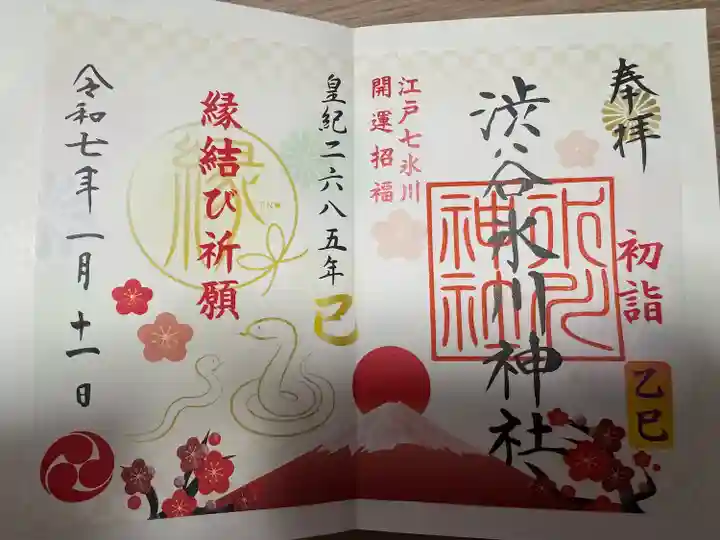 奉拝
初詣
乙巳
渋谷氷川神社
氷川
神社
江戸七氷川
開運招福
皇紀二六八五年
己
縁
縁結び祈願
令和七年一月十一日